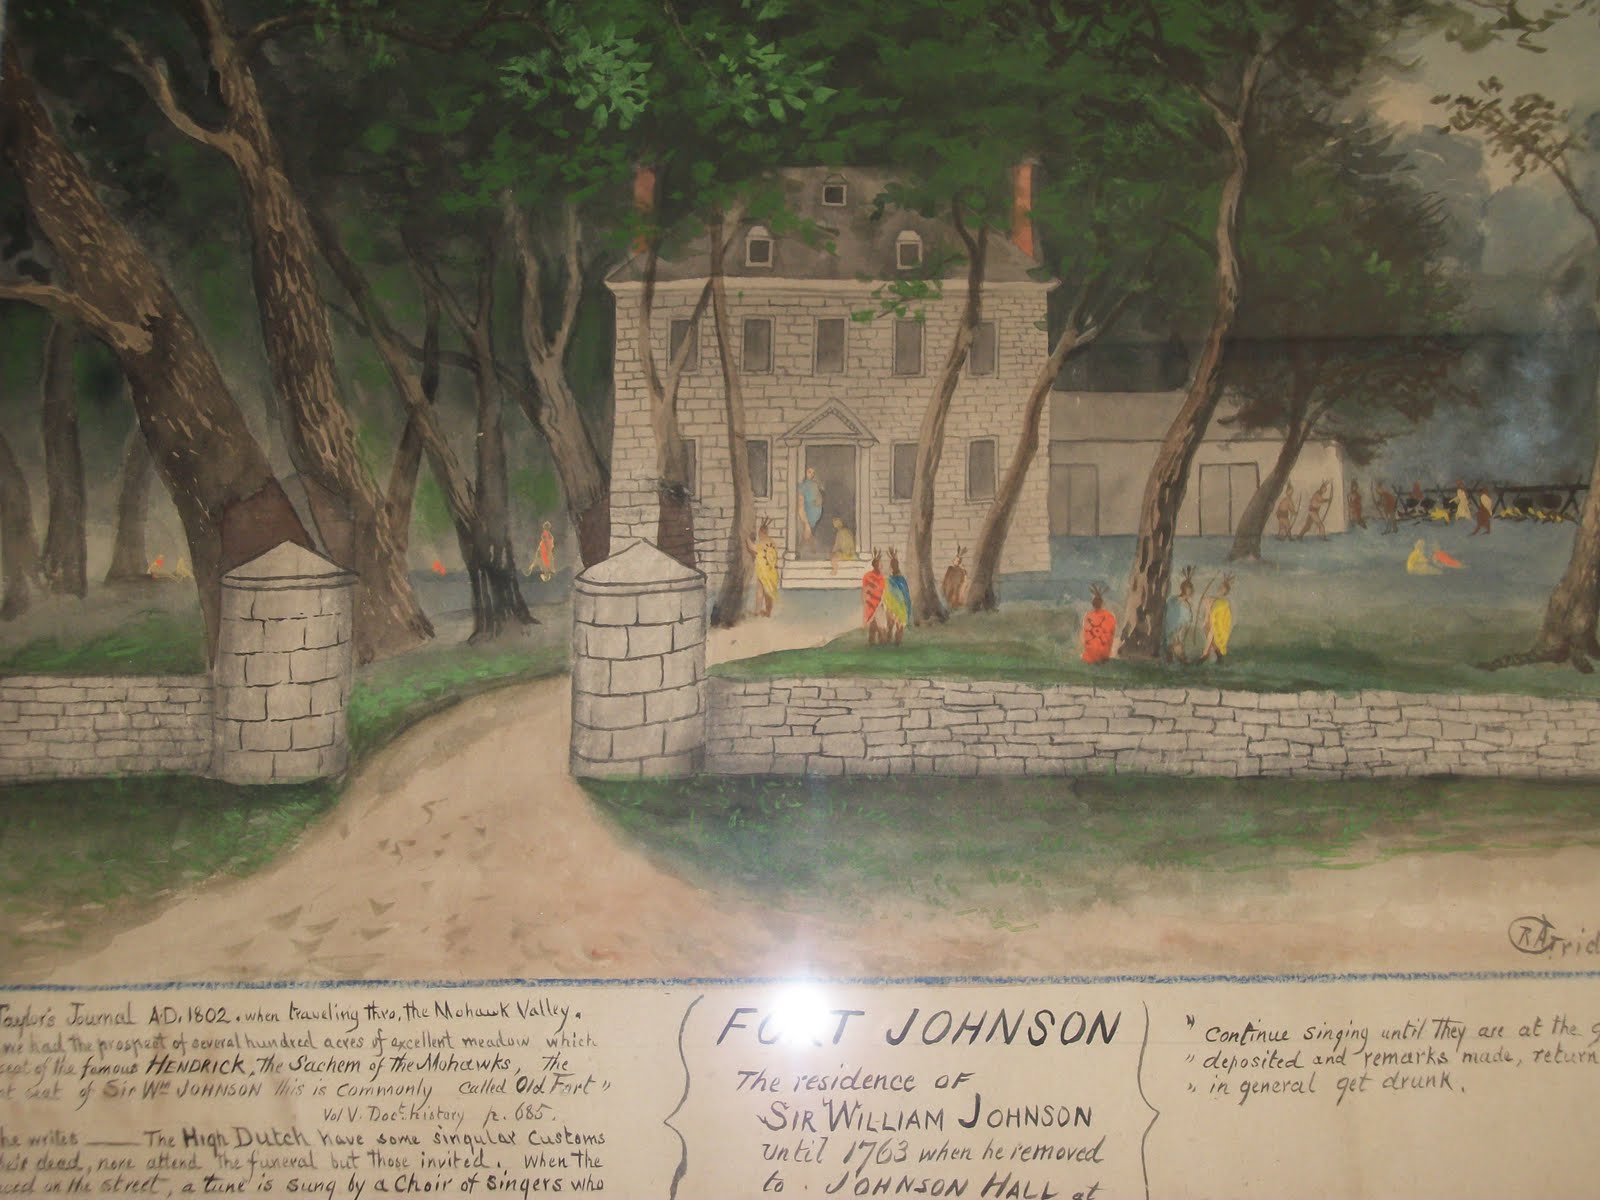 Taylor's Journal A.D. 1802. when traveling thro, the Mohawk Valley.
we had the prospect of several hundred acres of excellent meadow which
seat of the famous HENDRICK, The Sachem of The Mohawks, The
seat of Sir Wm JOHNSON This is commonly called Old Fort "
Vol V. Doct. history p. 685.
he writes — The High Dutch have some singular customs
their dead, none attend the funeral but those invited. When the
on the street, a tune is sung by a Choir of singers who
FORT JOHNSON
The residence OF
SIR WILLIAM JOHNSON
until 1763 when he removed
to. JOHNSON HALL at
" continue singing until They are at the
" deposited and remarks made, return
" in general get drunk.